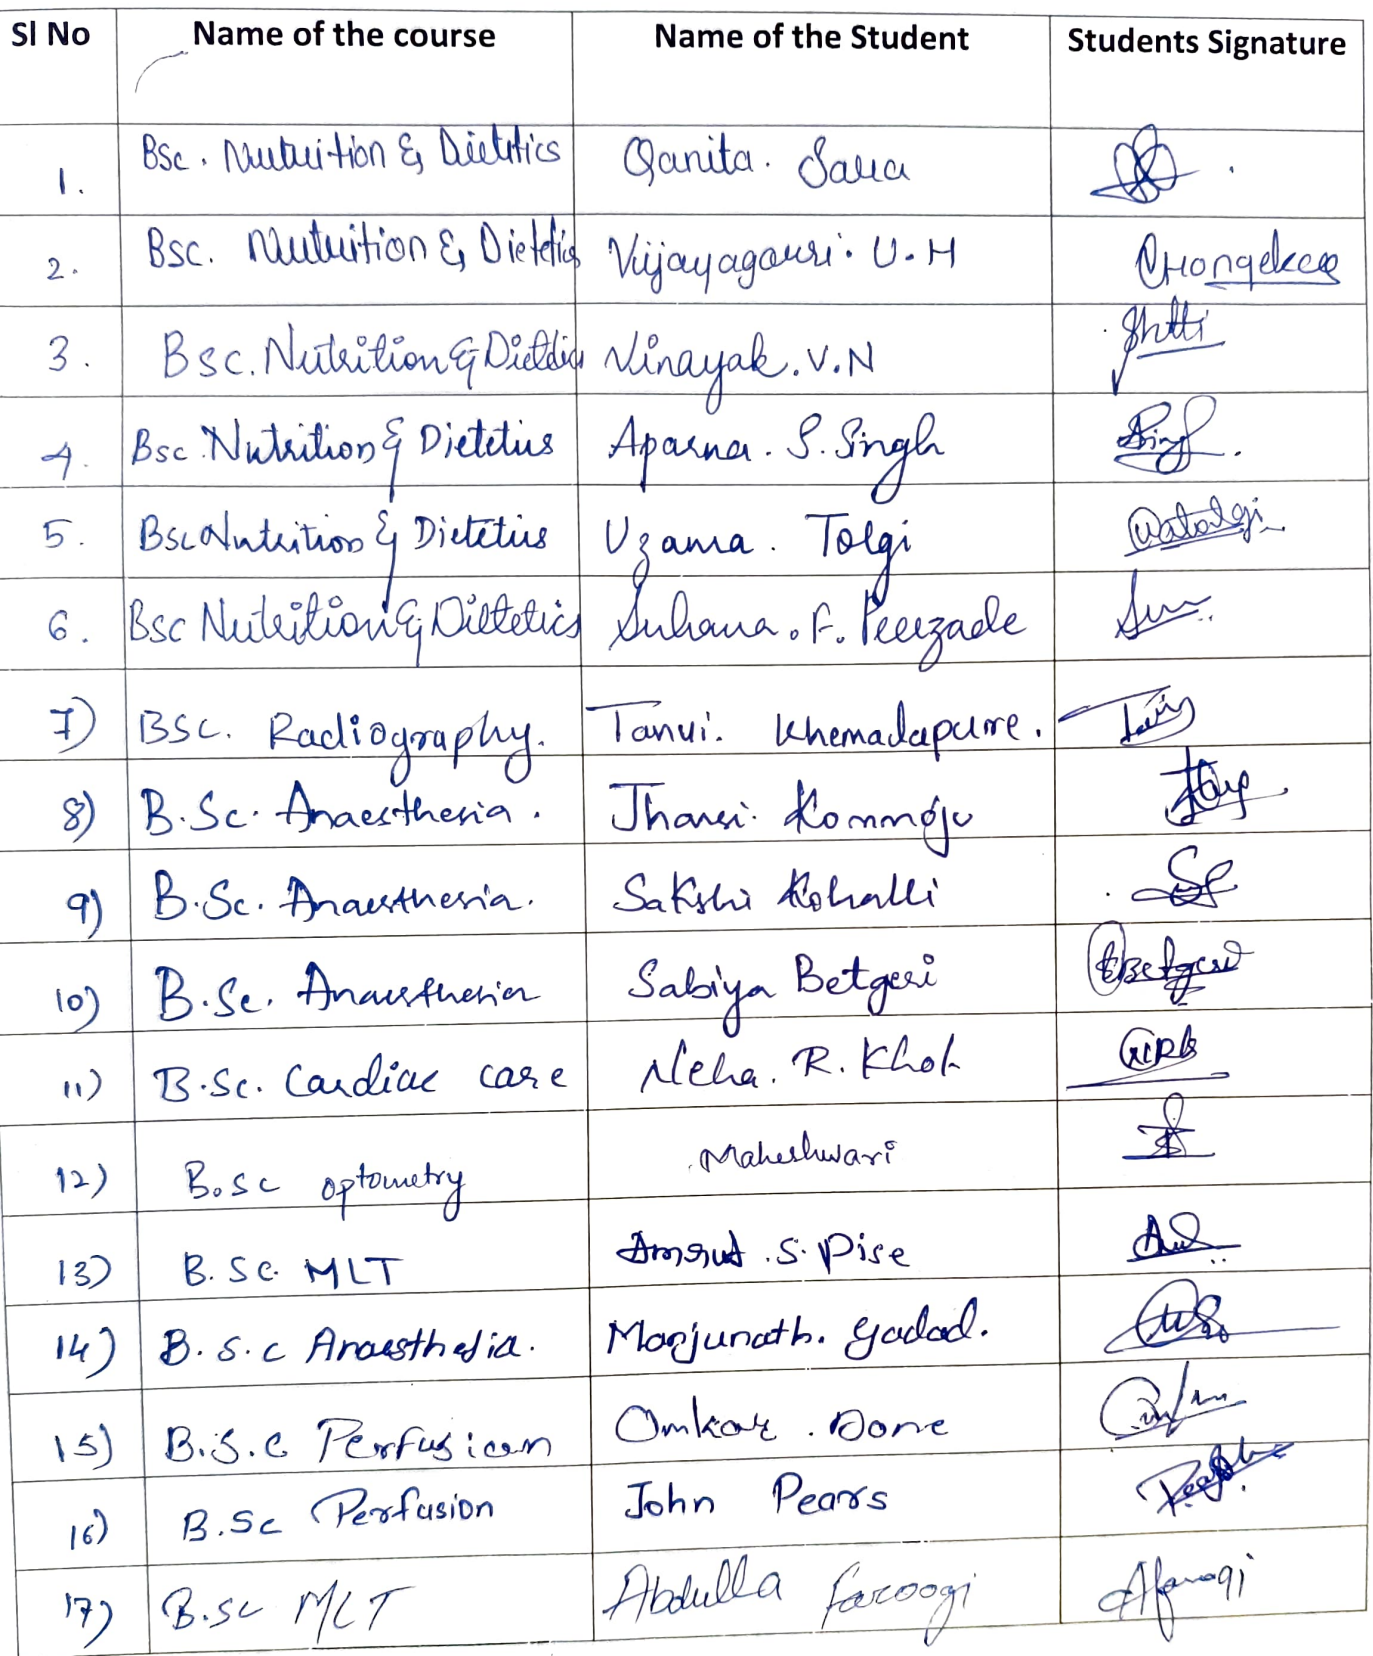 Sl No Name of the course Name of the Student Students Signature
1. Bsc. Nutrition & Dietetics Qanita. Sara
2. Bsc. Nutrition & Dietetics Vijayagouri. U. H
3. Bsc. Nutrition & Dietetics Vinayak. V. N
4. Bsc. Nutrition & Dietetics Aparna. S. Singh
5. Bsc Nutrition & Dietetics Uzama. Tolgi
6. Bsc Nutrition & Dietetics Suhana. F. Peerzade
7) BSC. Radiography. Tanvi. Khemalapure.
8) B.Sc. Anaesthesia. Jhansi. Kommoju
9) B.Sc. Anaesthesia. Sakshi Kohalli
10) B.Sc. Anaesthesia Sabiya Betgeri
11) B.Sc. Cardiac care Neha. R. Khot
12) B.Sc optometry Maheshwari
13) B. SC. MLT Amrut. S. Pise
14) B.S.c Anaesthesia. Manjunath. Gadad.
15) B.S.c Perfusion Omkar. Done
16) B.Sc Perfusion John Pears
17) B.sc MLT Abdulla Farooqi Afarooqi